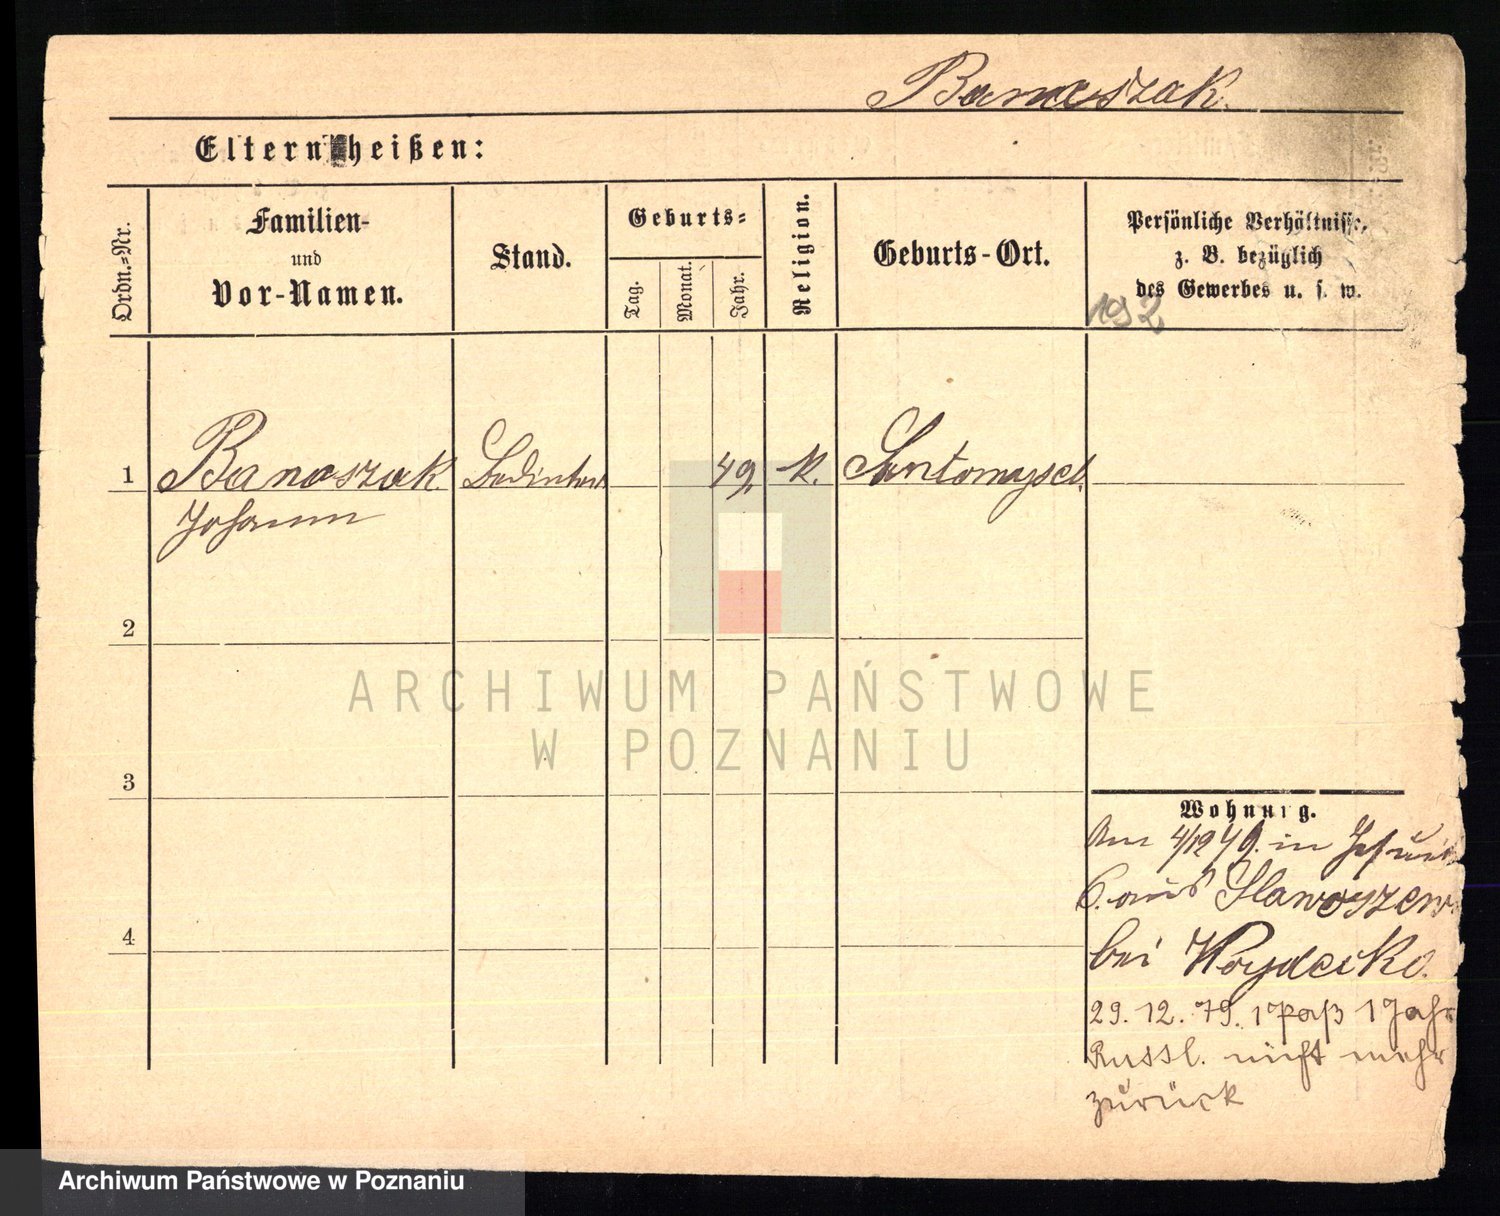 Banaszak.
Eltern heißen:
Ordn.-Nr.
Familien-
und
Vor-Namen.
Stand.
Geburts-
Tag.
Monat.
Jahr.
Religion.
Geburts-Ort.
Persönliche Verhältnisse,
z. B. bezüglich
des Gewerbes u. s. w.
192
1
Banaszak
Johann
49.
k.
Santomyschl.
2
3
4
ARCHIWUM PAŃSTWOWE
W POZNANIU
Wohnung.
Am 4/12 79. in
6. aus Slawoszew
bei
29. 12. 79. 1 Paß 1 Jahr
Russl. nicht mehr
zurück
Archiwum Państwowe w Poznaniu